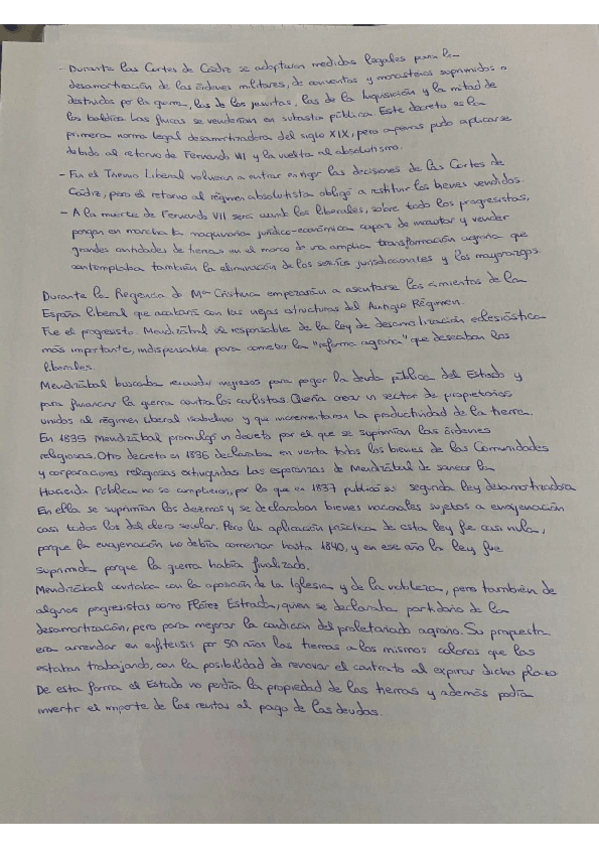 - Durante las Cortes de Cádiz se adoptaron medidas legales para la
desamortización de las órdenes militares, de conventos y monasterios suprimidos o
destruidos por la guerra, las de los jesuitas, las de la Inquisición y la mitad de
los baldíos. Las fincas se venderían en subasta pública. Este decreto es la
primera norma legal desamortizadora del siglo XIX, pero apenas pudo aplicarse
debido al retorno de Fernando VII y la vuelta al absolutismo.
- En el Trienio Liberal volvieron a entrar en vigor las decisiones de las Cortes de
Cádiz, pero el retorno al régimen absolutista obligó a restituir los bienes vendidos.
- A la muerte de Fernando VII será cuando los liberales, sobre todo los progresistas,
pongan en marcha la maquinaria jurídico-económica capaz de incautar y vender
grandes cantidades de tierras en el marco de una amplia transformación agraria que
contemplaba también la eliminación de los señoríos jurisdiccionales y los mayorazgos.
Durante la Regencia de Mª Cristina empezarán a asentarse los cimientos de la
España liberal que acabará con las viejas estructuras del Antiguo Régimen.
Fue el progresista Mendizábal el responsable de la ley de desamortización eclesiástica
más importante, indispensable para cometer la "reforma agraria" que deseaban los
liberales.
Mendizábal buscaba recaudar ingresos para pagar la deuda pública del Estado y
para financiar la guerra contra los carlistas. Quería crear un sector de propietarios
unidos al régimen liberal isabelino y que incrementaran la productividad de la tierra.
En 1835 Mendizábal promulgó un decreto por el que se suprimían las órdenes
religiosas. Otro decreto en 1836 declaraba en venta todos los bienes de las Comunidades
y corporaciones religiosas extinguidas. Las esperanzas de Mendizábal de sanear la
Hacienda Pública no se cumplieron, por lo que en 1837 publicó su segunda ley desamortizadora
En ella se suprimían los diezmos y se declaraban bienes nacionales sujetos a enajenación
casi todos los del clero secular. Pero la aplicación práctica de esta ley fue casi nula,
porque la enajenación no debía comenzar hasta 1840, y en ese año la ley fue
suprimida porque la guerra había finalizado.
Mendizábal contaba con la oposición de la Iglesia y de la nobleza, pero también de
algunos progresistas como Flórez Estrada, quien se declaraba partidario de la
desamortización, pero para mejorar la condición del proletariado agrario. Su propuesta
era arrendar en enfiteusis por 50 años las tierras a los mismos colonos que las
estaban trabajando, con la posibilidad de renovar el contrato al expirar dicho plazo
De esta forma el Estado no perdía la propiedad de las tierras y además podía
invertir el importe de las rentas al pago de las deudas.